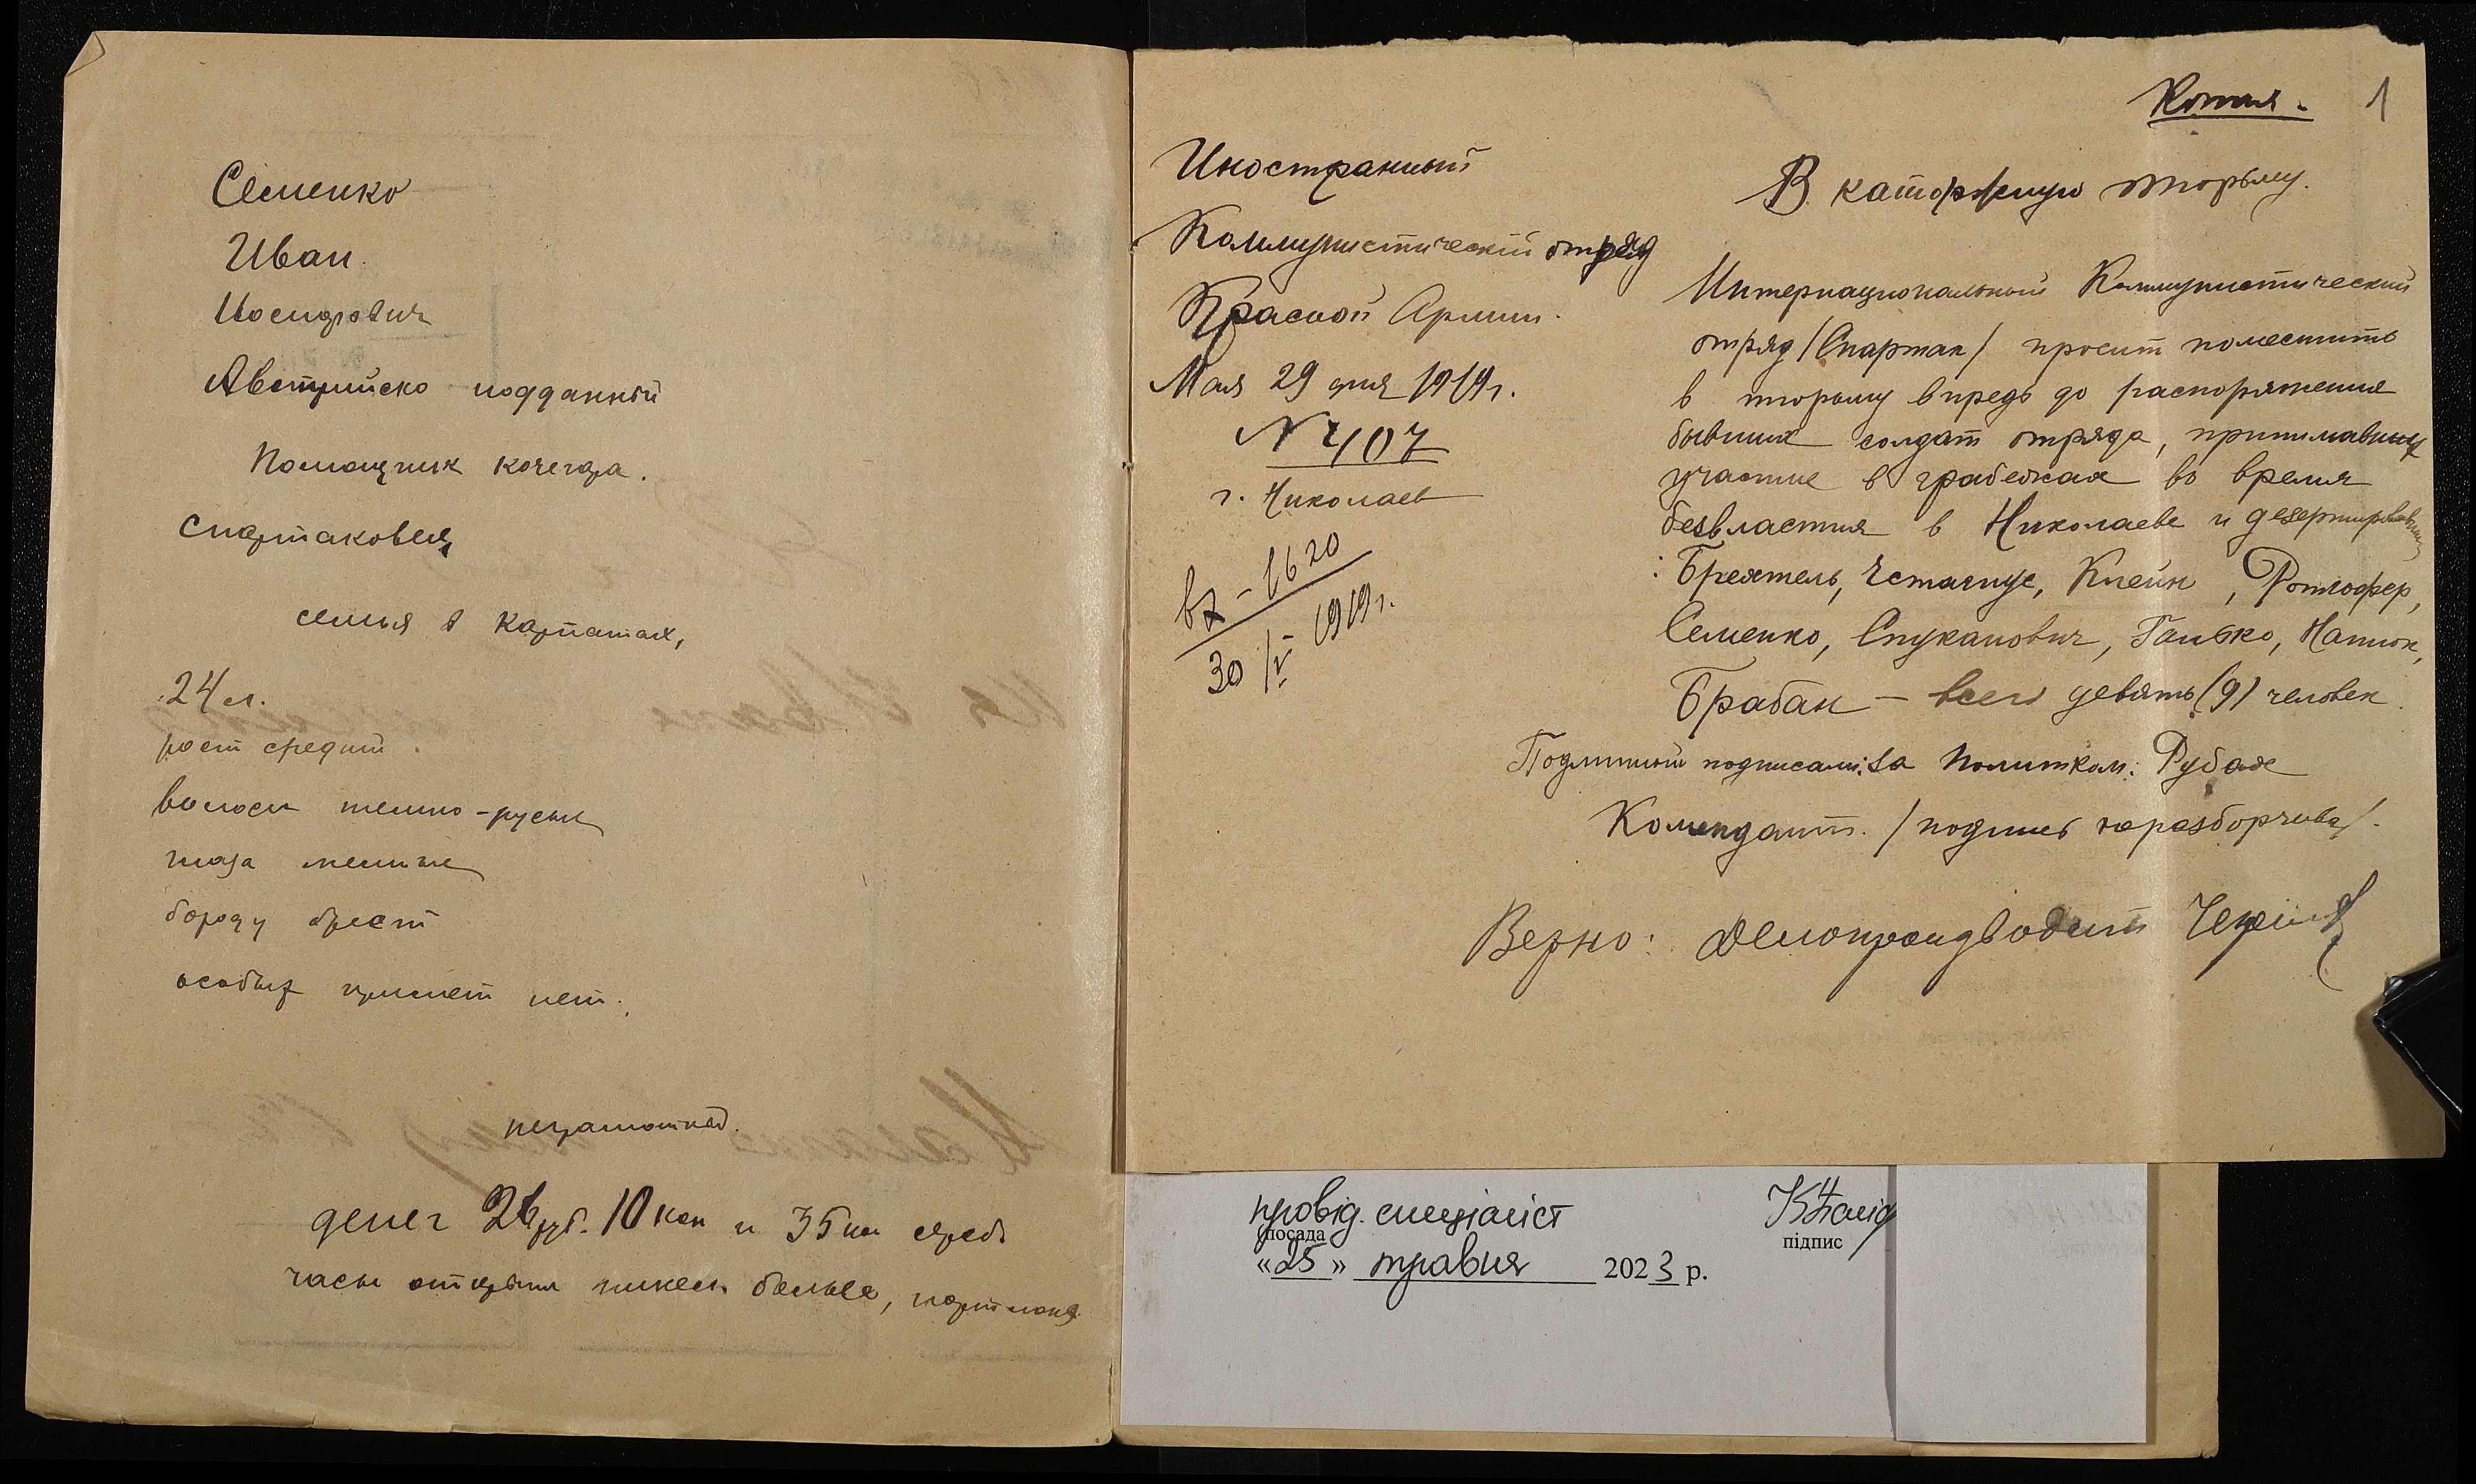 Семенко
Иван
Иосифович
Австрийско подданный
Помощник кочегара.
Спартаковец
семья в Карпатах,
24 л.
рост средний.
волосы темно-русые
глаза
бороду бреет
особых примет нет.
неграмотный.
денег 26 руб. 10 коп и 35 коп сереб.
часы открыти никель белые, портмоне
Копия. 1
Иностранный
Коммунистический отряд
Красной Армии.
Мая 29 дня 1919 г.
N 407
г. Николаев
вх - 1620
30/V 1919 г.
В каторжную тюрьму.
Интернациональный Коммунистический
отряд /Спартак/ просит поместить
в тюрьму впредь до распоряжения
бывших солдат отряда, принимавших
участие в грабежах во время
безвластия в Николаеве и дезертировавших
: Бреятель, Клейн, Ротлофер,
Семенко, Стуканович, Ганько, Напюк,
Брабан – всего девять (9) человек.
Подлинный подписали: за Политком: Рубах
Комендант. /подпись неразборчива/.
Верно: Делопроизводит
провід. спеціаліст
посада
підпис
«25» травня 2023 р.